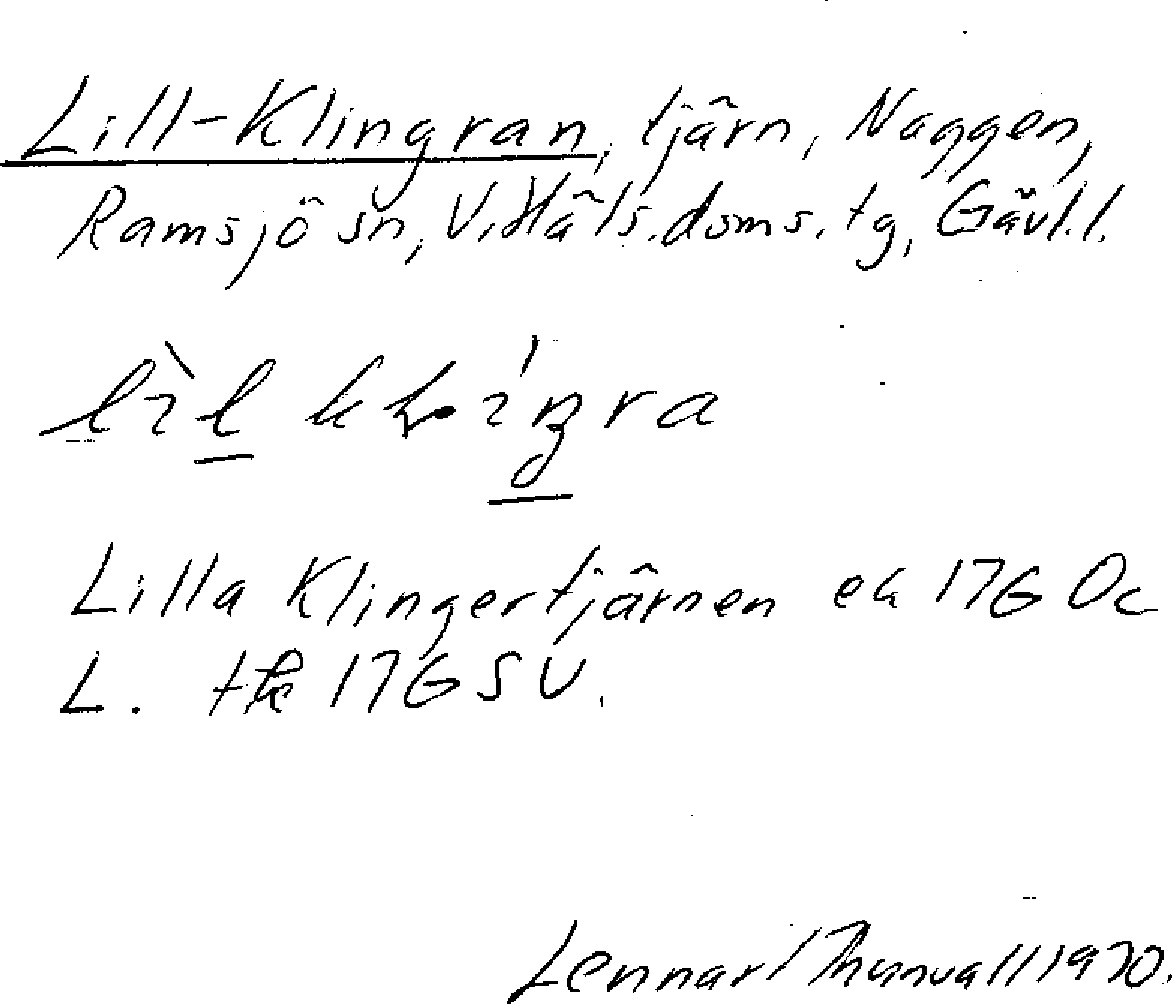 Lill-Klingran, tjärn, Naggen,
Ramsjö sn, V. Häls. doms. tg, Gävl.l.
Lilla Klingertjärnen ek 17G 0c
L. tk 17G SV.
Lennart 1970.